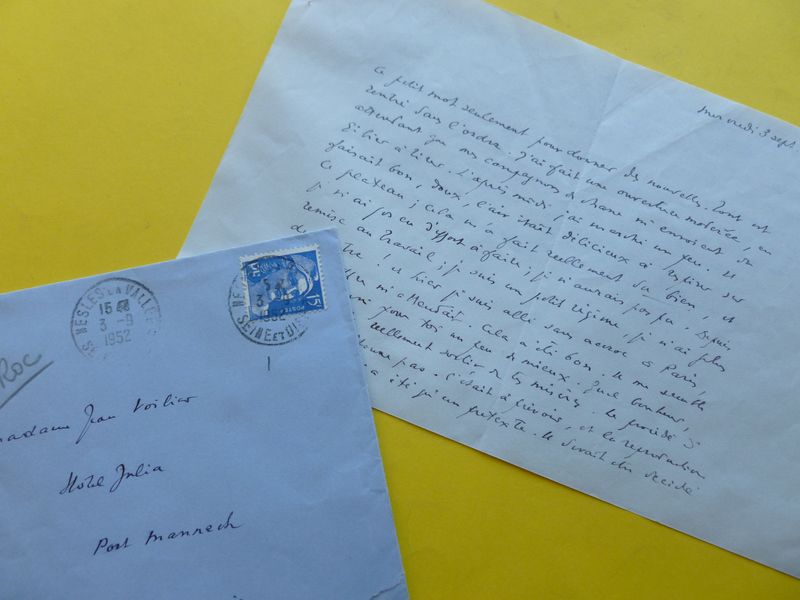 mercredi 3 sept.
Ce petit mot seulement pour donner des nouvelles. Tout est
rentré dans l'ordre. J'ai fait une ouverture modérée, en
attendant que mes compagnons de
L'après-midi j'ai marché un peu. Il
faisait bon, doux, l'air était délicieux à respirer sur
le plateau ; cela m'a fait réellement du bien, et
je n'ai pas eu d'effort à faire ; je n'aurais pas pu. Depuis
remise au travail ; je suis un petit régime, je n'ai plus
! et hier je suis allé sans accroc à Paris,
m'attendait. Cela a été bon. Il me semble
pour toi un peu de mieux. Quel bonheur,
réellement sortir de tes misères. Le procédé
pas. C'était à prévoir, et la reproduction
a été qu'un prétexte. Il serait
NESLES LA VALLEE
15
3 - 9
1952
SEINE ET OISE
POSTES
15F
Roc
Madame Jean Voilier
Hotel Julia
Port Mannech